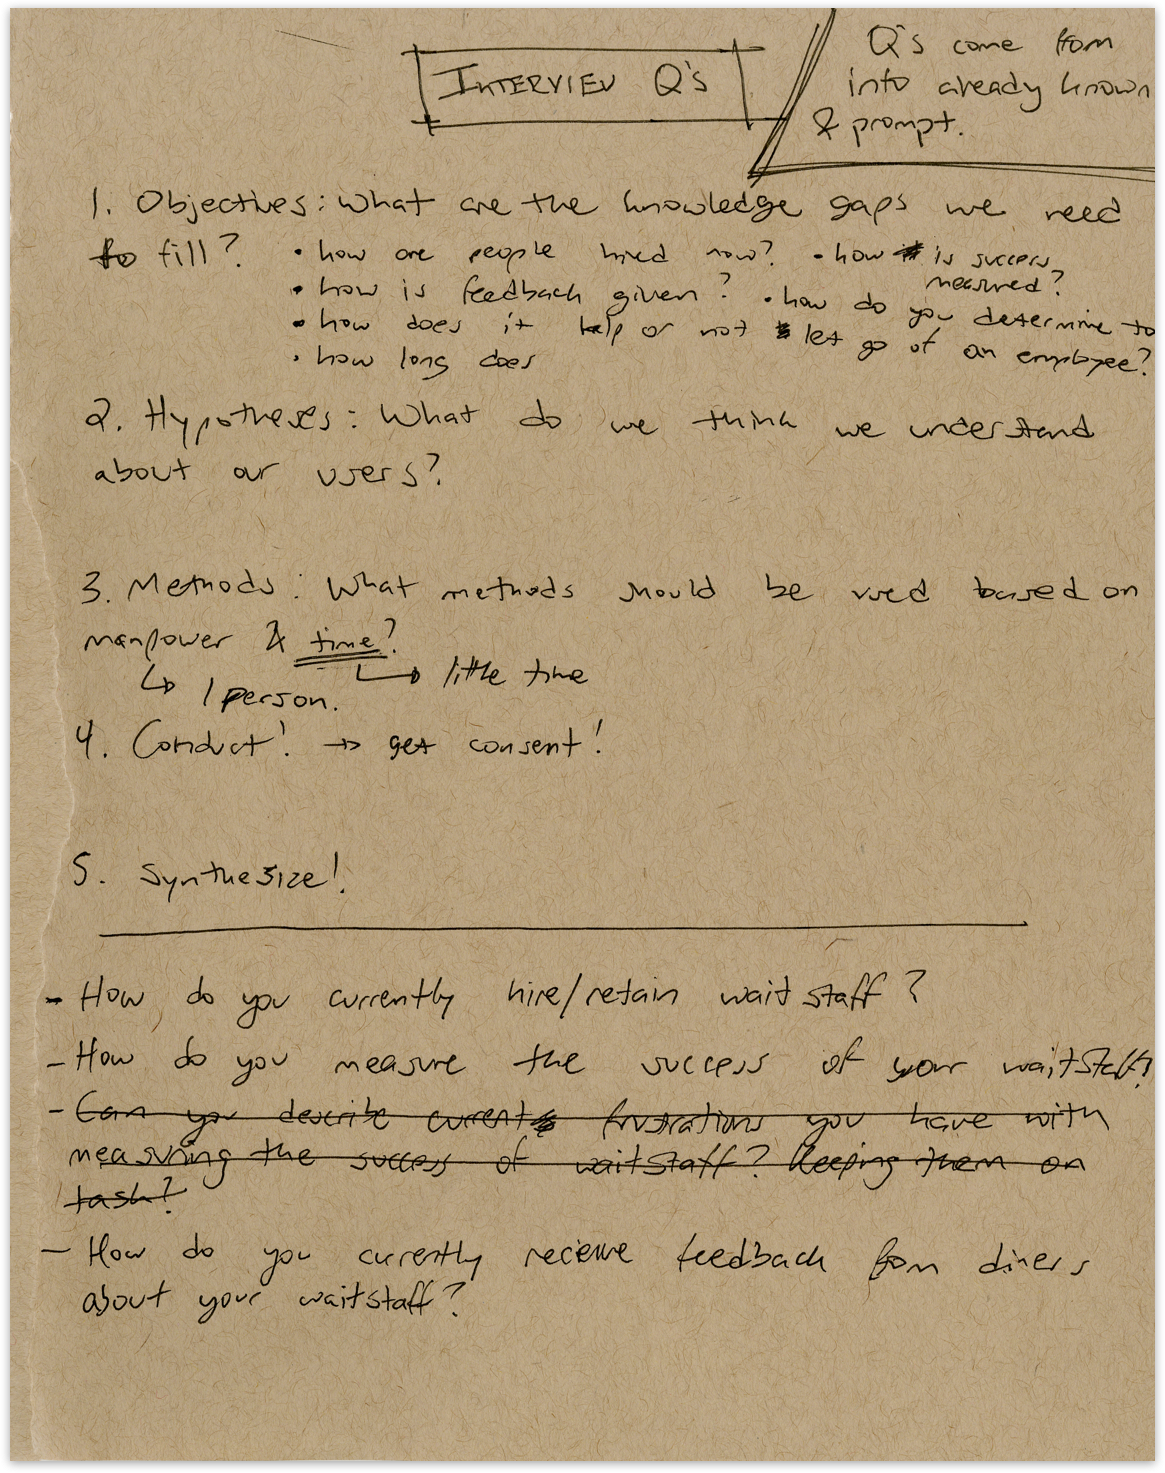 INTERVIEW Q's
Q's come from
into already known
& prompt.
1. Objectives: What are the knowledge gaps we need
to fill?
• how are people hired now?
• how is feedback given?
• how does it help or not
• how long does
• how is success
measured?
• how do you determine to
let go of an employee?
2. Hypotheses: What do we think we understand
about our users?
3. Methods: What methods should be used based on
manpower & time?
↳ 1 person.
↳ little time
4. Conduct! → get consent!
5. Synthesize!
- How do you currently hire/retain wait staff?
- How do you measure the success of your waitstaff?
- Can you describe current frustrations you have with
measuring the success of waitstaff? Keeping them on
task?
- How do you currently receive feedback from diners
about your waitstaff?